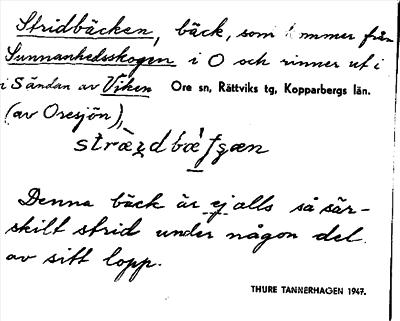 Stridbäcken, bäck, som kommer från
Sunnanhedsskogen i O och rinner ut i
i Sändan av Viken Ore sn, Rättviks tg, Kopparbergs län.
(av Oresjön),
Denna bäck är ej alls så sär-
skilt strid under någon del
av sitt lopp.
THURE TANNERHAGEN 1947.